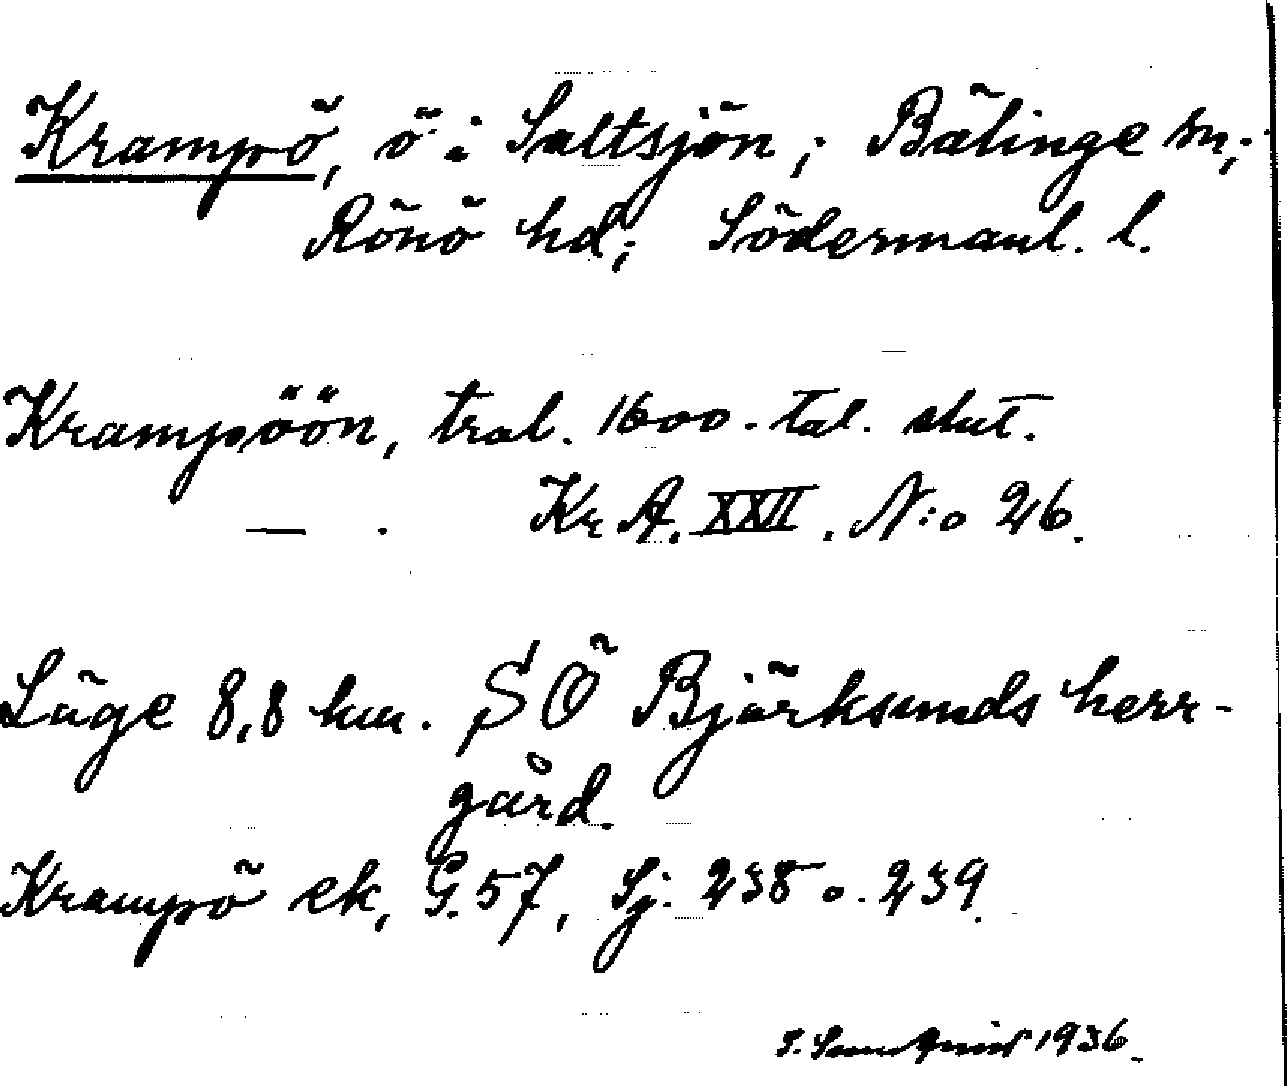 Krampö, ö i Saltsjön; Bälinge sn;
Rönö hd; Södermanl. l.
Krampöön, tral. 1600-tal. slut.
— . Kr A. XXII. N:o 26.
Läge 8,8 km. SÖ Björksunds herr-
gård.
Krampö ek, G. 57, Sj. 238 o. 239.
1936.